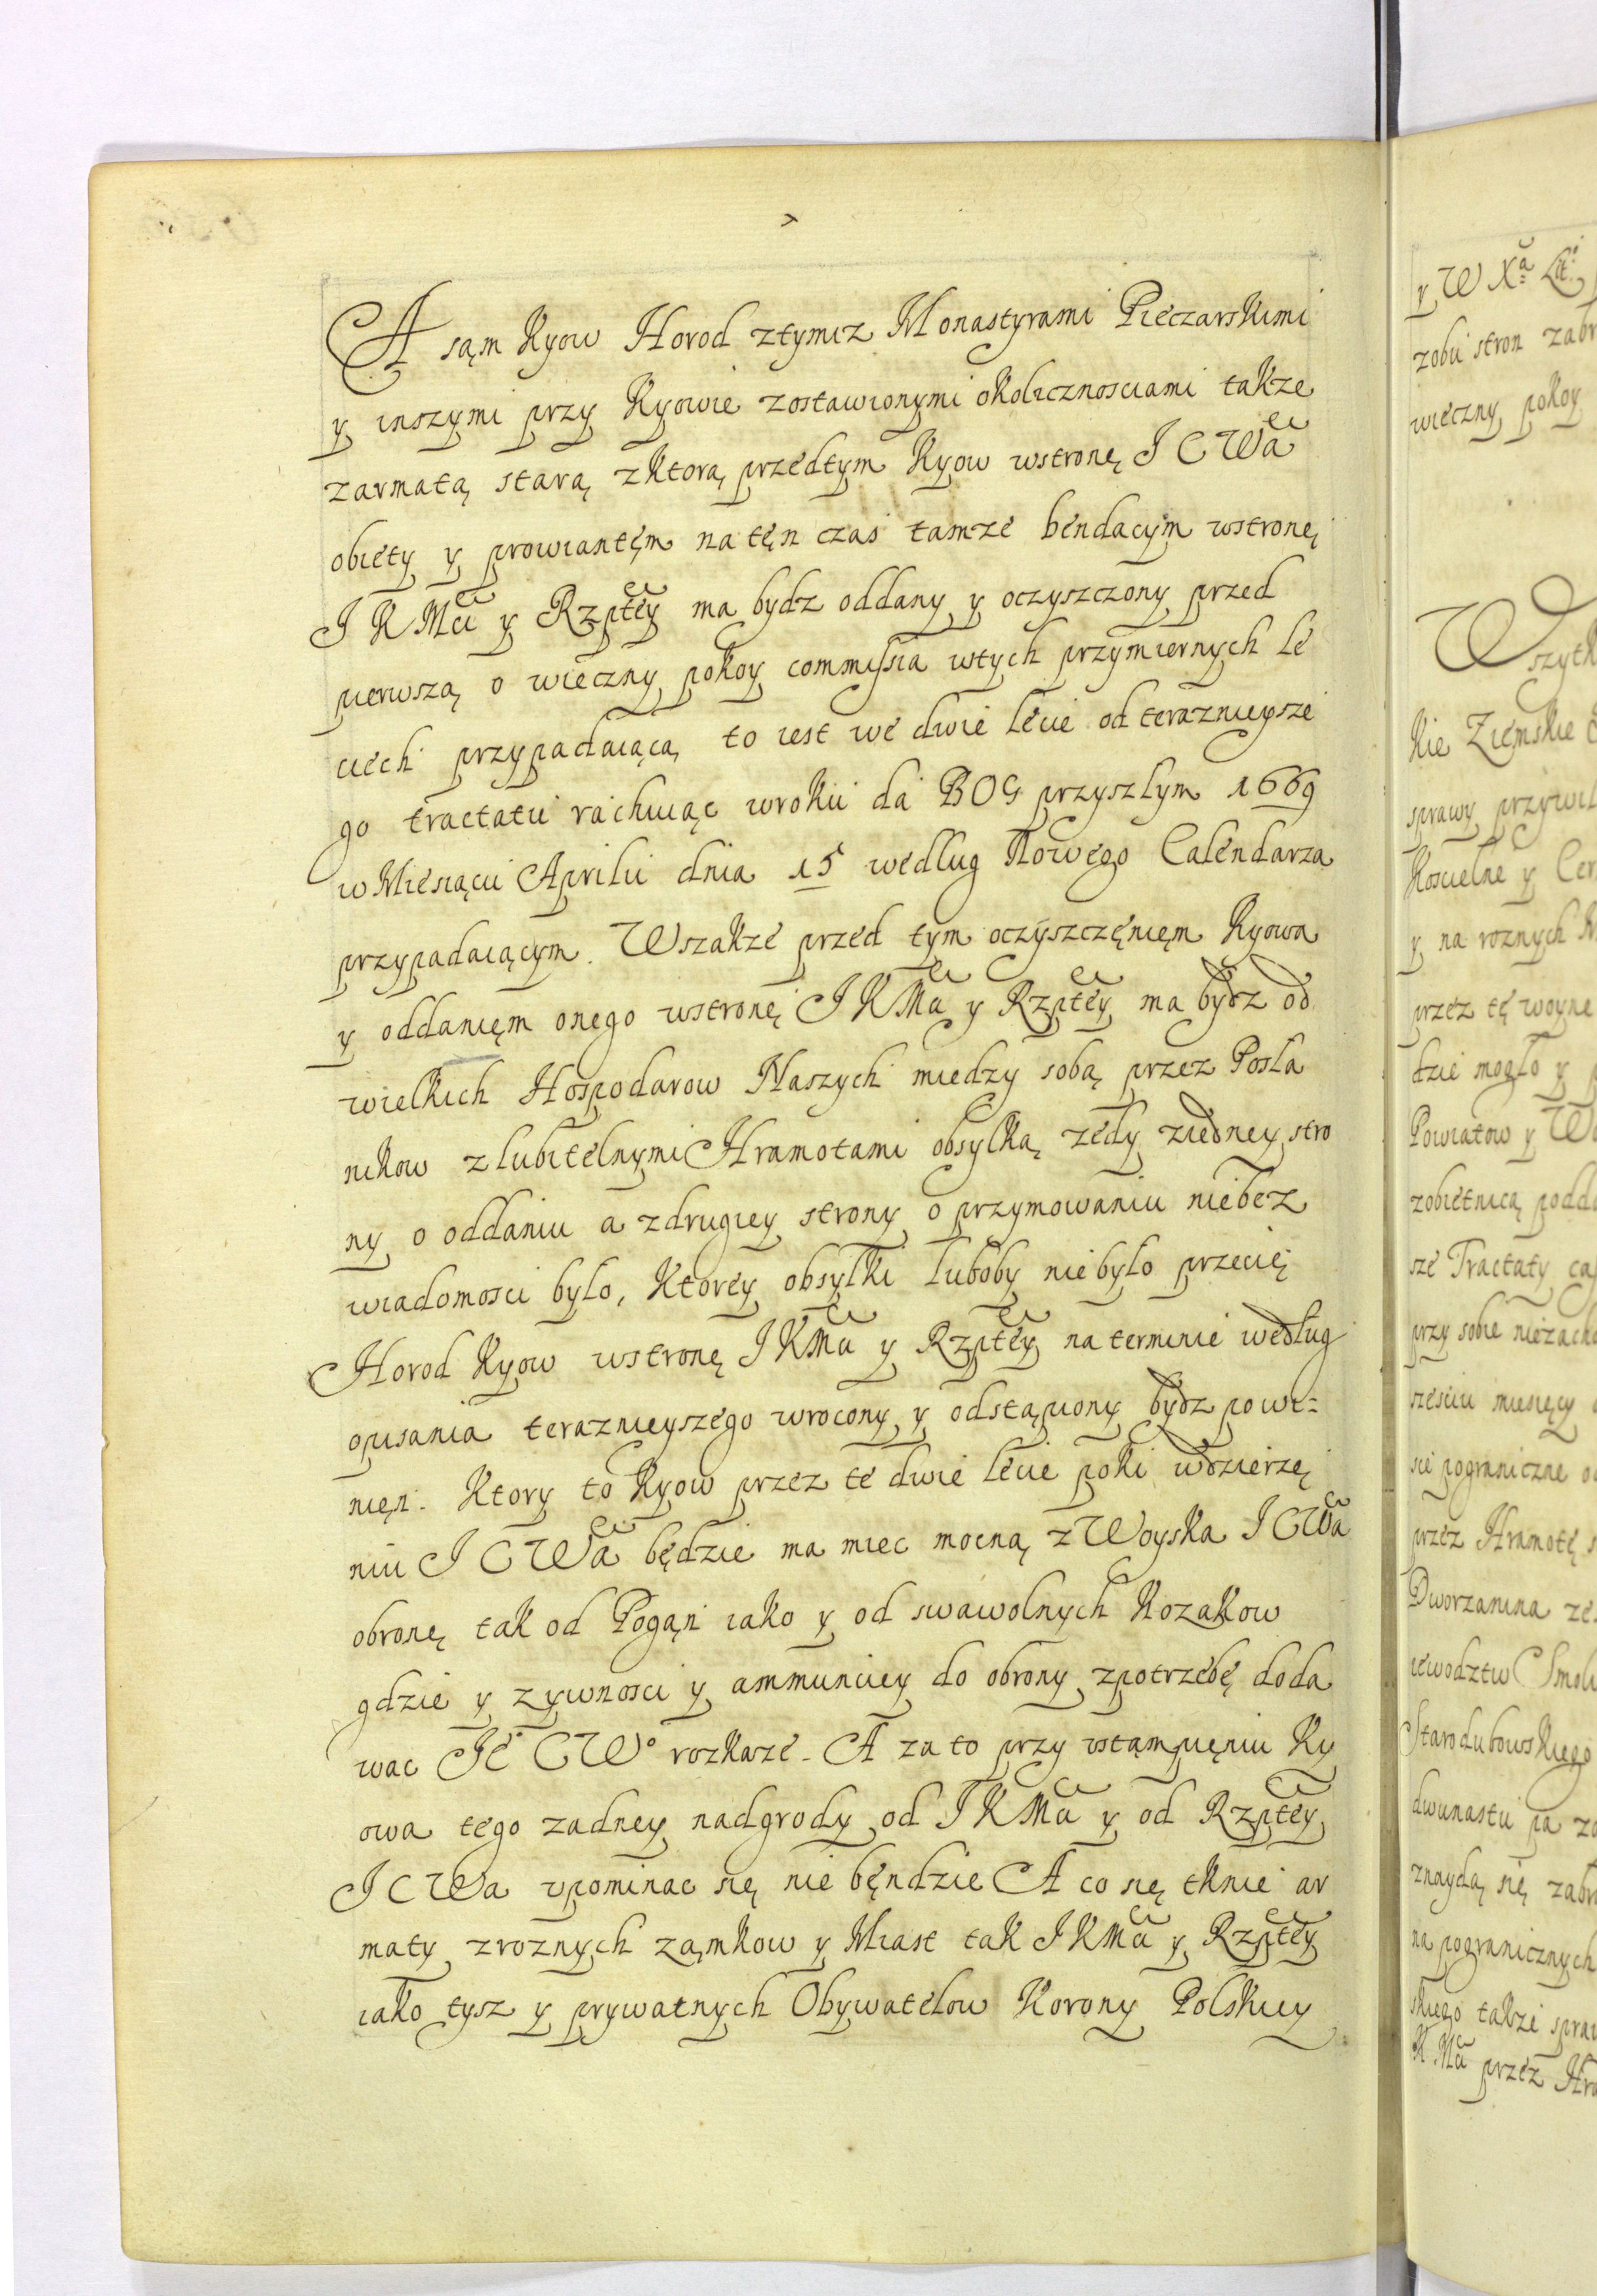 A sąm Kyow Horod ztymiz Monastyrami Pieczarskimi
y inszymi przy Kyowie zostawionymi okolicznosciami takze
zarmatą starą zktorą przedtym Kyow wstronę J C Wa
obiety y prowiantęm na tęn czas tamze bendacym wstronę
J K Mci y Rzptey ma bydz oddany y oczyszczony przed
pierwszą o wieczny pokoy commissia wtych przymiernych le
ciech przypadaiącą to iest we dwie lecie od teraznieysze
go tractatu rachuiąc wroku da BOG przyszlym 1669
w Miesiącu Aprilu dnia 15 wedlug Nowego Calendarza
przypadaiącym. Wszakze przed tym oczyszczęnięm Kyowa
y oddanięm onego wstronę J K Mci y Rzptey ma bydz od
wielkich Hospodarow Naszych miedzy sobą przez Posla
nikow z lubitelnymi Hramotami obsylką zedy ziedney stro
ny o oddaniu a zdrugiey strony o przymowaniu niebez
wiadomosci bylo, Ktorey obsylki luboby niebylo przecię
Horod Kyow wstronę J K Mci y Rzptey na terminie wedlug
opisania teraznieyszego wrocony y odstąpiony bydz powi=
nięn. Ktory to Kyow przez te dwie lecie poki wdzierzę
niu J C Wa będzie ma miec mocną z Woyska J C Wa
obronę tak od Pogąn iako y od swawolnych Kozakow
gdzie y zywnosci y ammuniciey do obrony zpotrzebę doda
wac Je° C W° rozkaze. A za to przy vstąmpięniu Ky
owa tego zadney nadgrody od J K Mci y od Rzptey
J C Wa vpominac się nie bęndzie A co się tknie ar
maty zroznych ząmkow y Miast tak J K Mci y Rzptey
iako tysz y prywatnych Obywatelow Korony Polskiey
y W Xa Lit:
zobu stron zabr
wieczny pokoy
Wszytk
kie Ziemskie
sprawy przywil
Koscielne y Cer
y na roznych
przez tę woyne
dzie moglo y
Powiatow y Wo
zobietnicą podda
sze Tractaty
przy sobie niezacho
szesciu miesięcy
sie pograniczne
przez Hramotę
Dworzanina
iewodztw Smol
Starodubowskiego
dwunastu
znaydą się zabr
na pogranicznych
skiego takze spraw
K Mci przez Hra